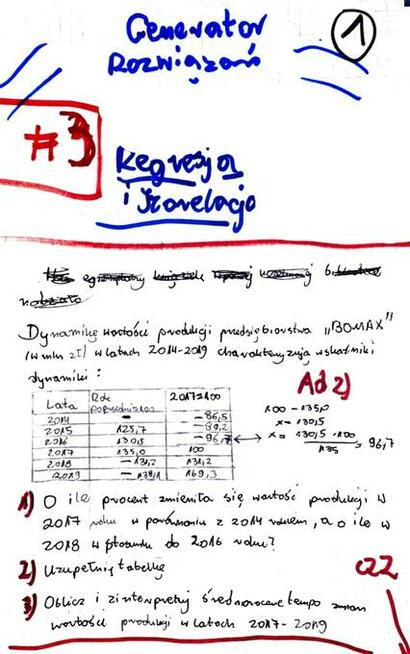 Generator
Rozwiązań
1
#3
Regresja
i Korelacja
Dynamikę wartości produkcji przedsiębiorstwa "BOMAX"
(w mln zł) w latach 2014-2019 charakteryzują wskaźniki
dynamiki:
Ad 2)
Lata Rok poprzedni=100 2017=100
2014 - -86,5
2015 125,7 -89,2
2016 130,5 -96,7
2017 135,0 100
2018 -131,2 131,2
2019 169,3
100 - 135,0
x - 130,5
x = 130,5 · 100 / 135 = 96,7
1) O ile procent zmieniła się wartość produkcji w
2017 roku w porównaniu z 2014 rokiem, a o ile w
2018 w stosunku do 2016 roku?
2) Uzupełnij tabelkę
3) Oblicz i zinterpretuj średnioroczne tempo zmian
wartości produkcji w latach 2017-2019